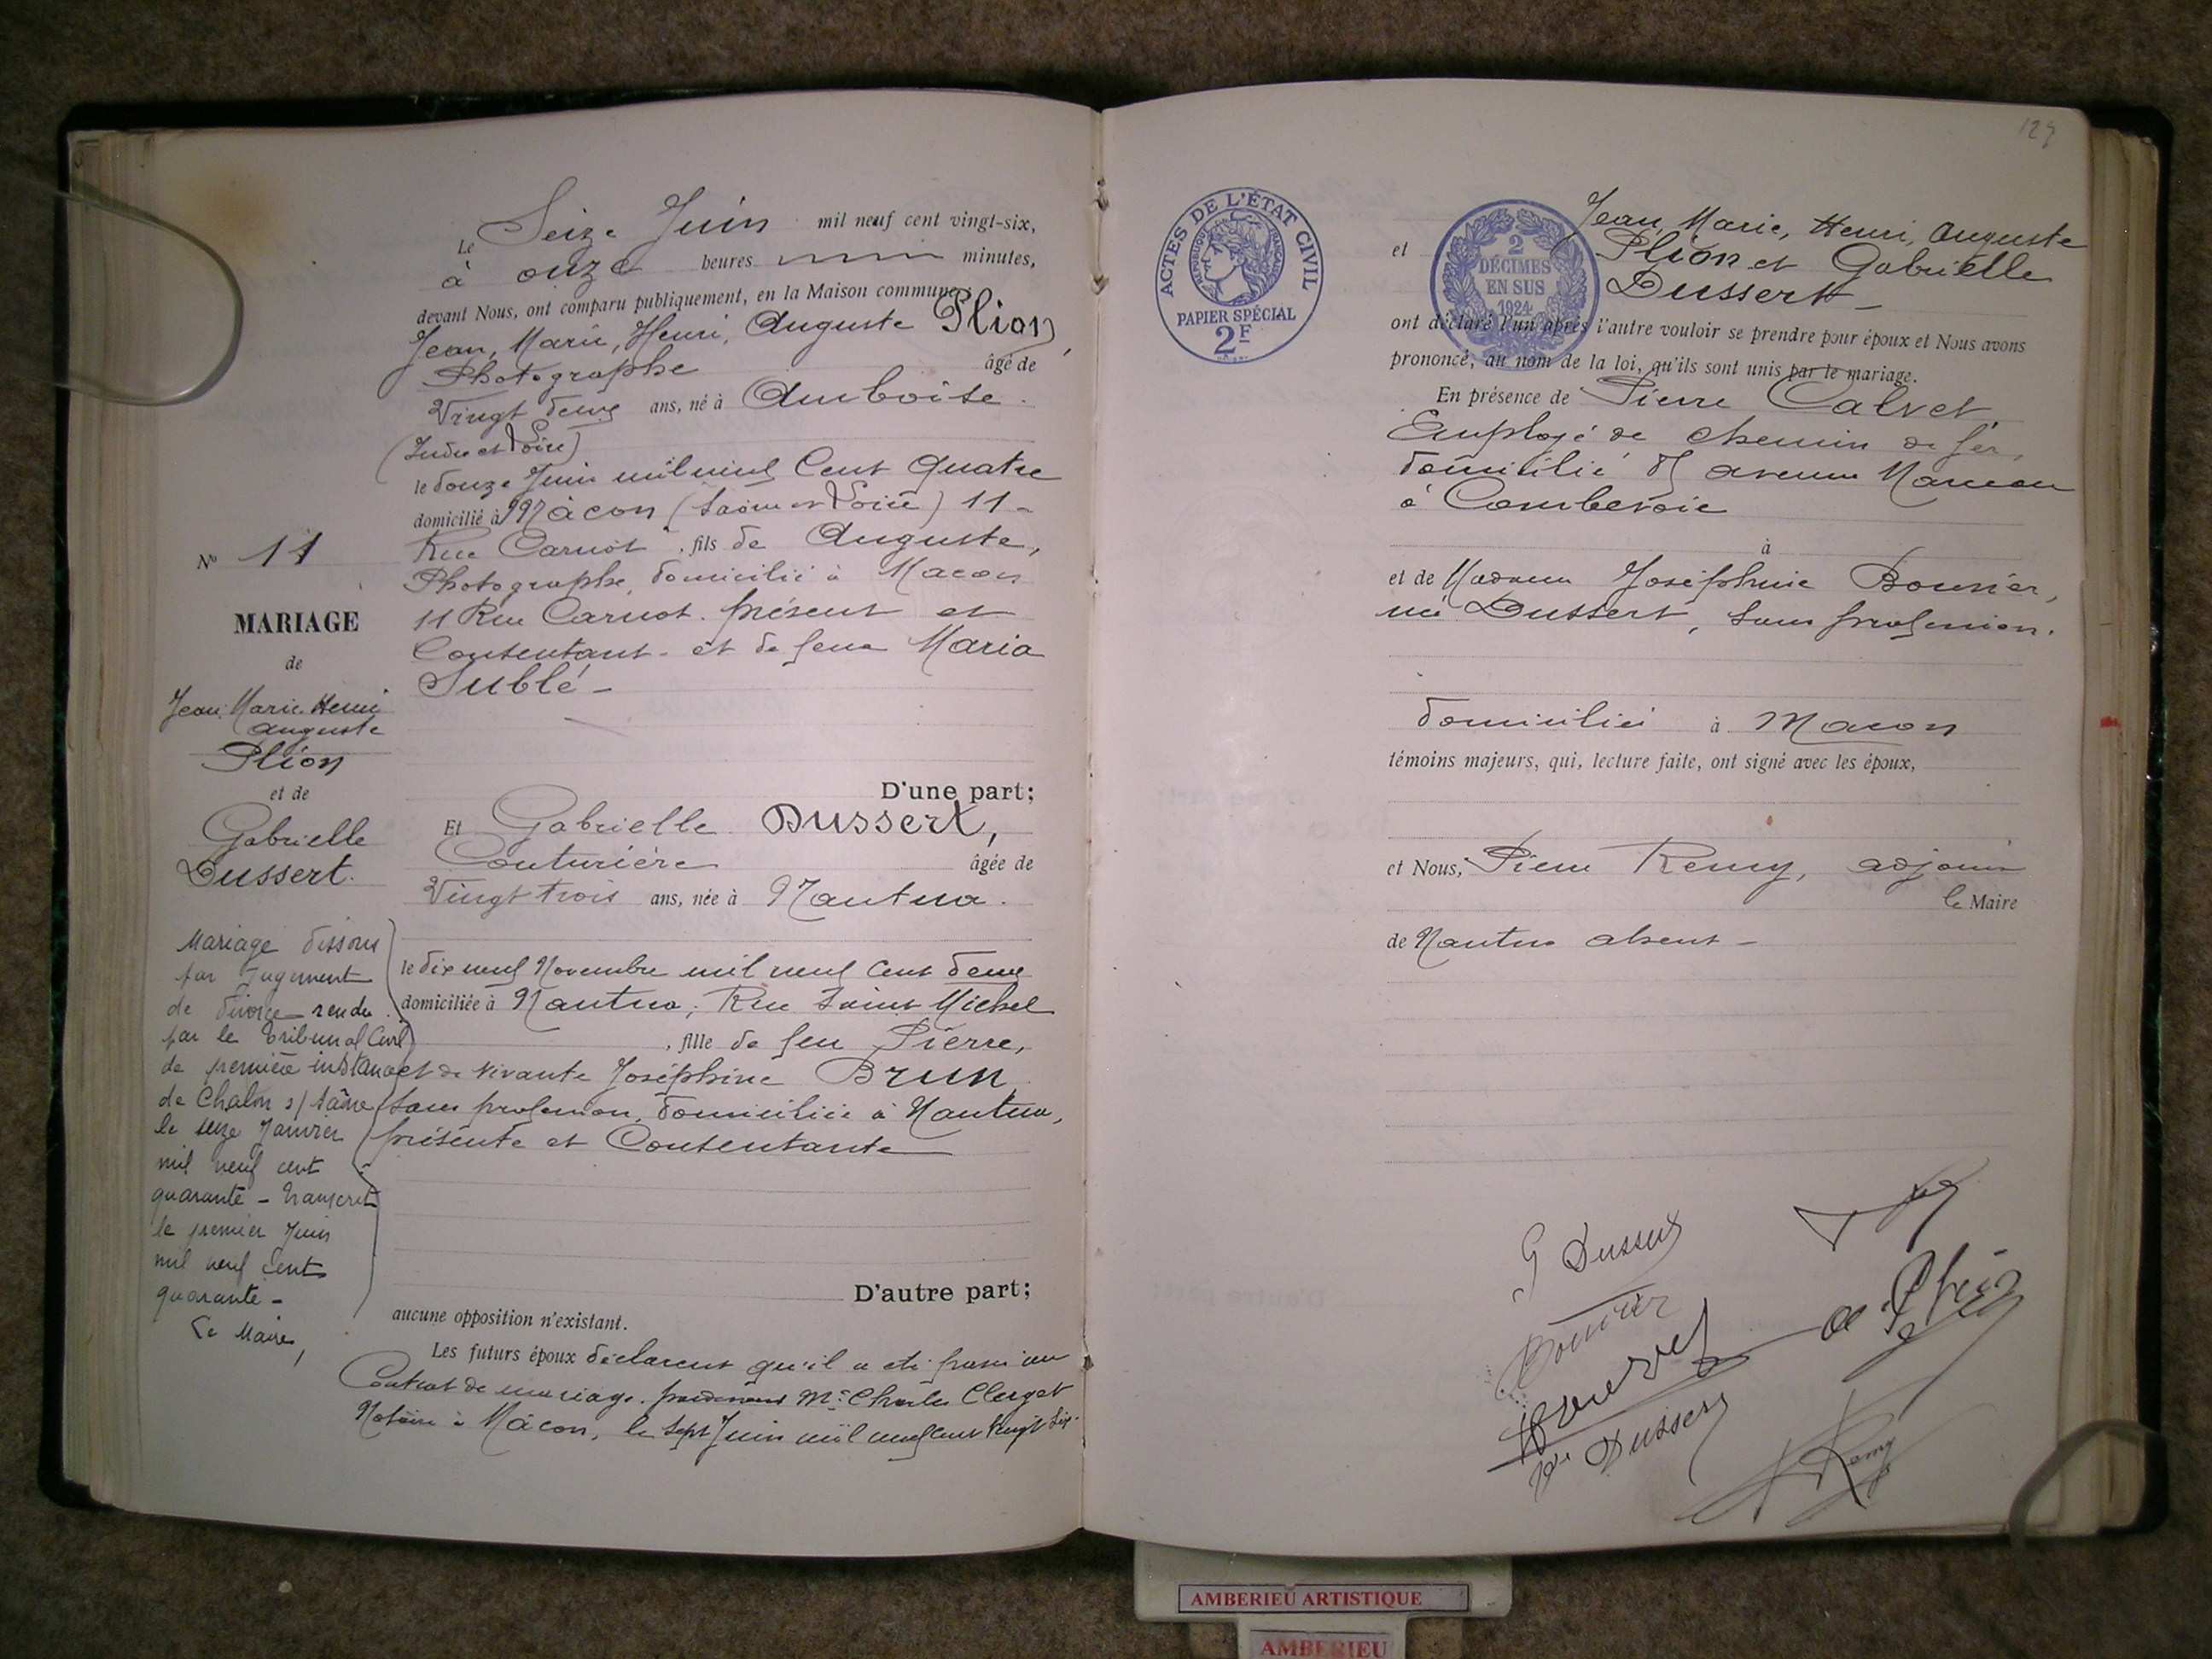 Le Seize Juin mil neuf cent vingt-six,
à onze heures minutes,
devant Nous, ont comparu publiquement, en la Maison commune :
Jean, Marie, Henri, Auguste Plion,
Photographe âgé de
Vingt deux ans, né à Amboise.
(Indre et Loire)
le douze Juin mil neuf Cent Quatre
domicilié à Mâcon (Saône et Loire) 11-
Rue Carnot, fils de Auguste,
Photographe, domicilié à Macon
11 Rue Carnot. présent et
Consentant. et de feue Maria
Sublé -
N° 11
MARIAGE
de
Jean Marie Henri
Auguste
Plion
et de
Gabrielle
Dussert.
D'une part;
Et Gabrielle Dussert,
Couturière âgée de
Vingt trois ans, née à Nantua.
le dix neuf Novembre mil neuf Cent deux
domiciliée à Nantua, Rue Saint Michel
, fille de feu Pierre,
et de vivante Joséphine Brun,
Sans profession, domiciliée à Nantua,
présente et Consentante
D'autre part;
aucune opposition n'existant.
Les futurs époux déclarent qu'il a été passé un
Contrat de mariage. pardevant Me Charles Clerget
Notaire à Mâcon, le Sept Juin mil neuf cent Vingt Six.
Mariage dissous
par Jugement
de divorce rendu
par le Tribunal Civil
de première instance
de Chalon s/ Saône
le seize Janvier
mil neuf cent
quarante - Transcrit
le premier Juin
mil neuf cent
quarante -
Le Maire,
ACTES DE L'ÉTAT CIVIL
RÉPUBLIQUE FRANÇAISE
PAPIER SPÉCIAL
2F
2
DÉCIMES
EN SUS
1924
Jean, Marie, Henri, Auguste
et Plion et Gabrielle
Dussert -
ont déclaré l'un après l'autre vouloir se prendre pour époux et Nous avons
prononcé, au nom de la loi, qu'ils sont unis par le mariage.
En présence de Pierre Calvet,
Employé de chemin de fer,
domicilié avenue Marceau
à Courbevoie
à
et de Madame Joséphine Bouvier,
née Dussert, Sans profession.
domiciliés à Macon
témoins majeurs, qui, lecture faite, ont signé avec les époux,
et Nous, Pierre Remy, adjoint
le Maire
de Nantua absent -
G Dussert
Bouvier
a Plion
Dussert
Remy
AMBERIEU ARTISTIQUE
AMBERIEU